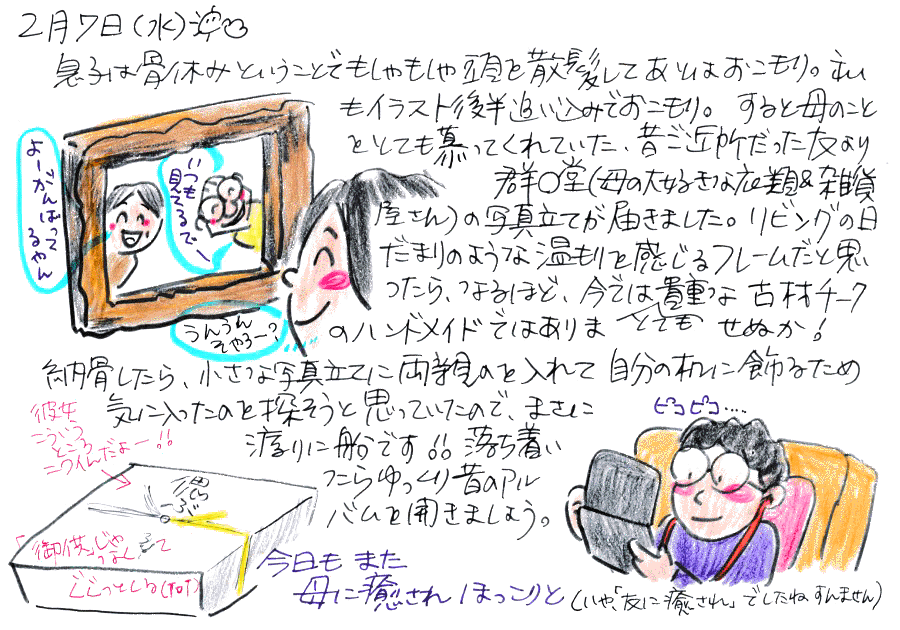 2月7日(水)
息子は骨休みということでもしゃもしゃ頭を散髪してあとはおこもり。私
もイラスト後半追い込みでおこもり。すると母のこと
をとても慕ってくれていた、昔ご近所だった友より
群〇堂(母の大好きな衣類&雑貨
屋さん)の写真立てが届きました。リビングの日
だまりのような温もりを感じるフレームだと思
ったら、なるほど、今では貴重な古材チーク
のハンドメイドではありませぬか!
とても
よーがんばって
るやん
いつも
見てるでー
うんうん
そやろー?
納骨したら、小さな写真立てに両親のを入れて自分の机に飾るため
気に入ったのを探そうと思っていたので、まさに
渡りに船です!!落ち着い
たらゆっくり昔のアル
バムを開きましょう。
彼女
こういう
ところ
ニクイんだよー!!
「御供」じゃ
なくって
ぐぐっとくる(ToT)
ピコピコ....
今日もまた
母に癒されほっこりと
(いや、「友に癒され」でしたね すんません)